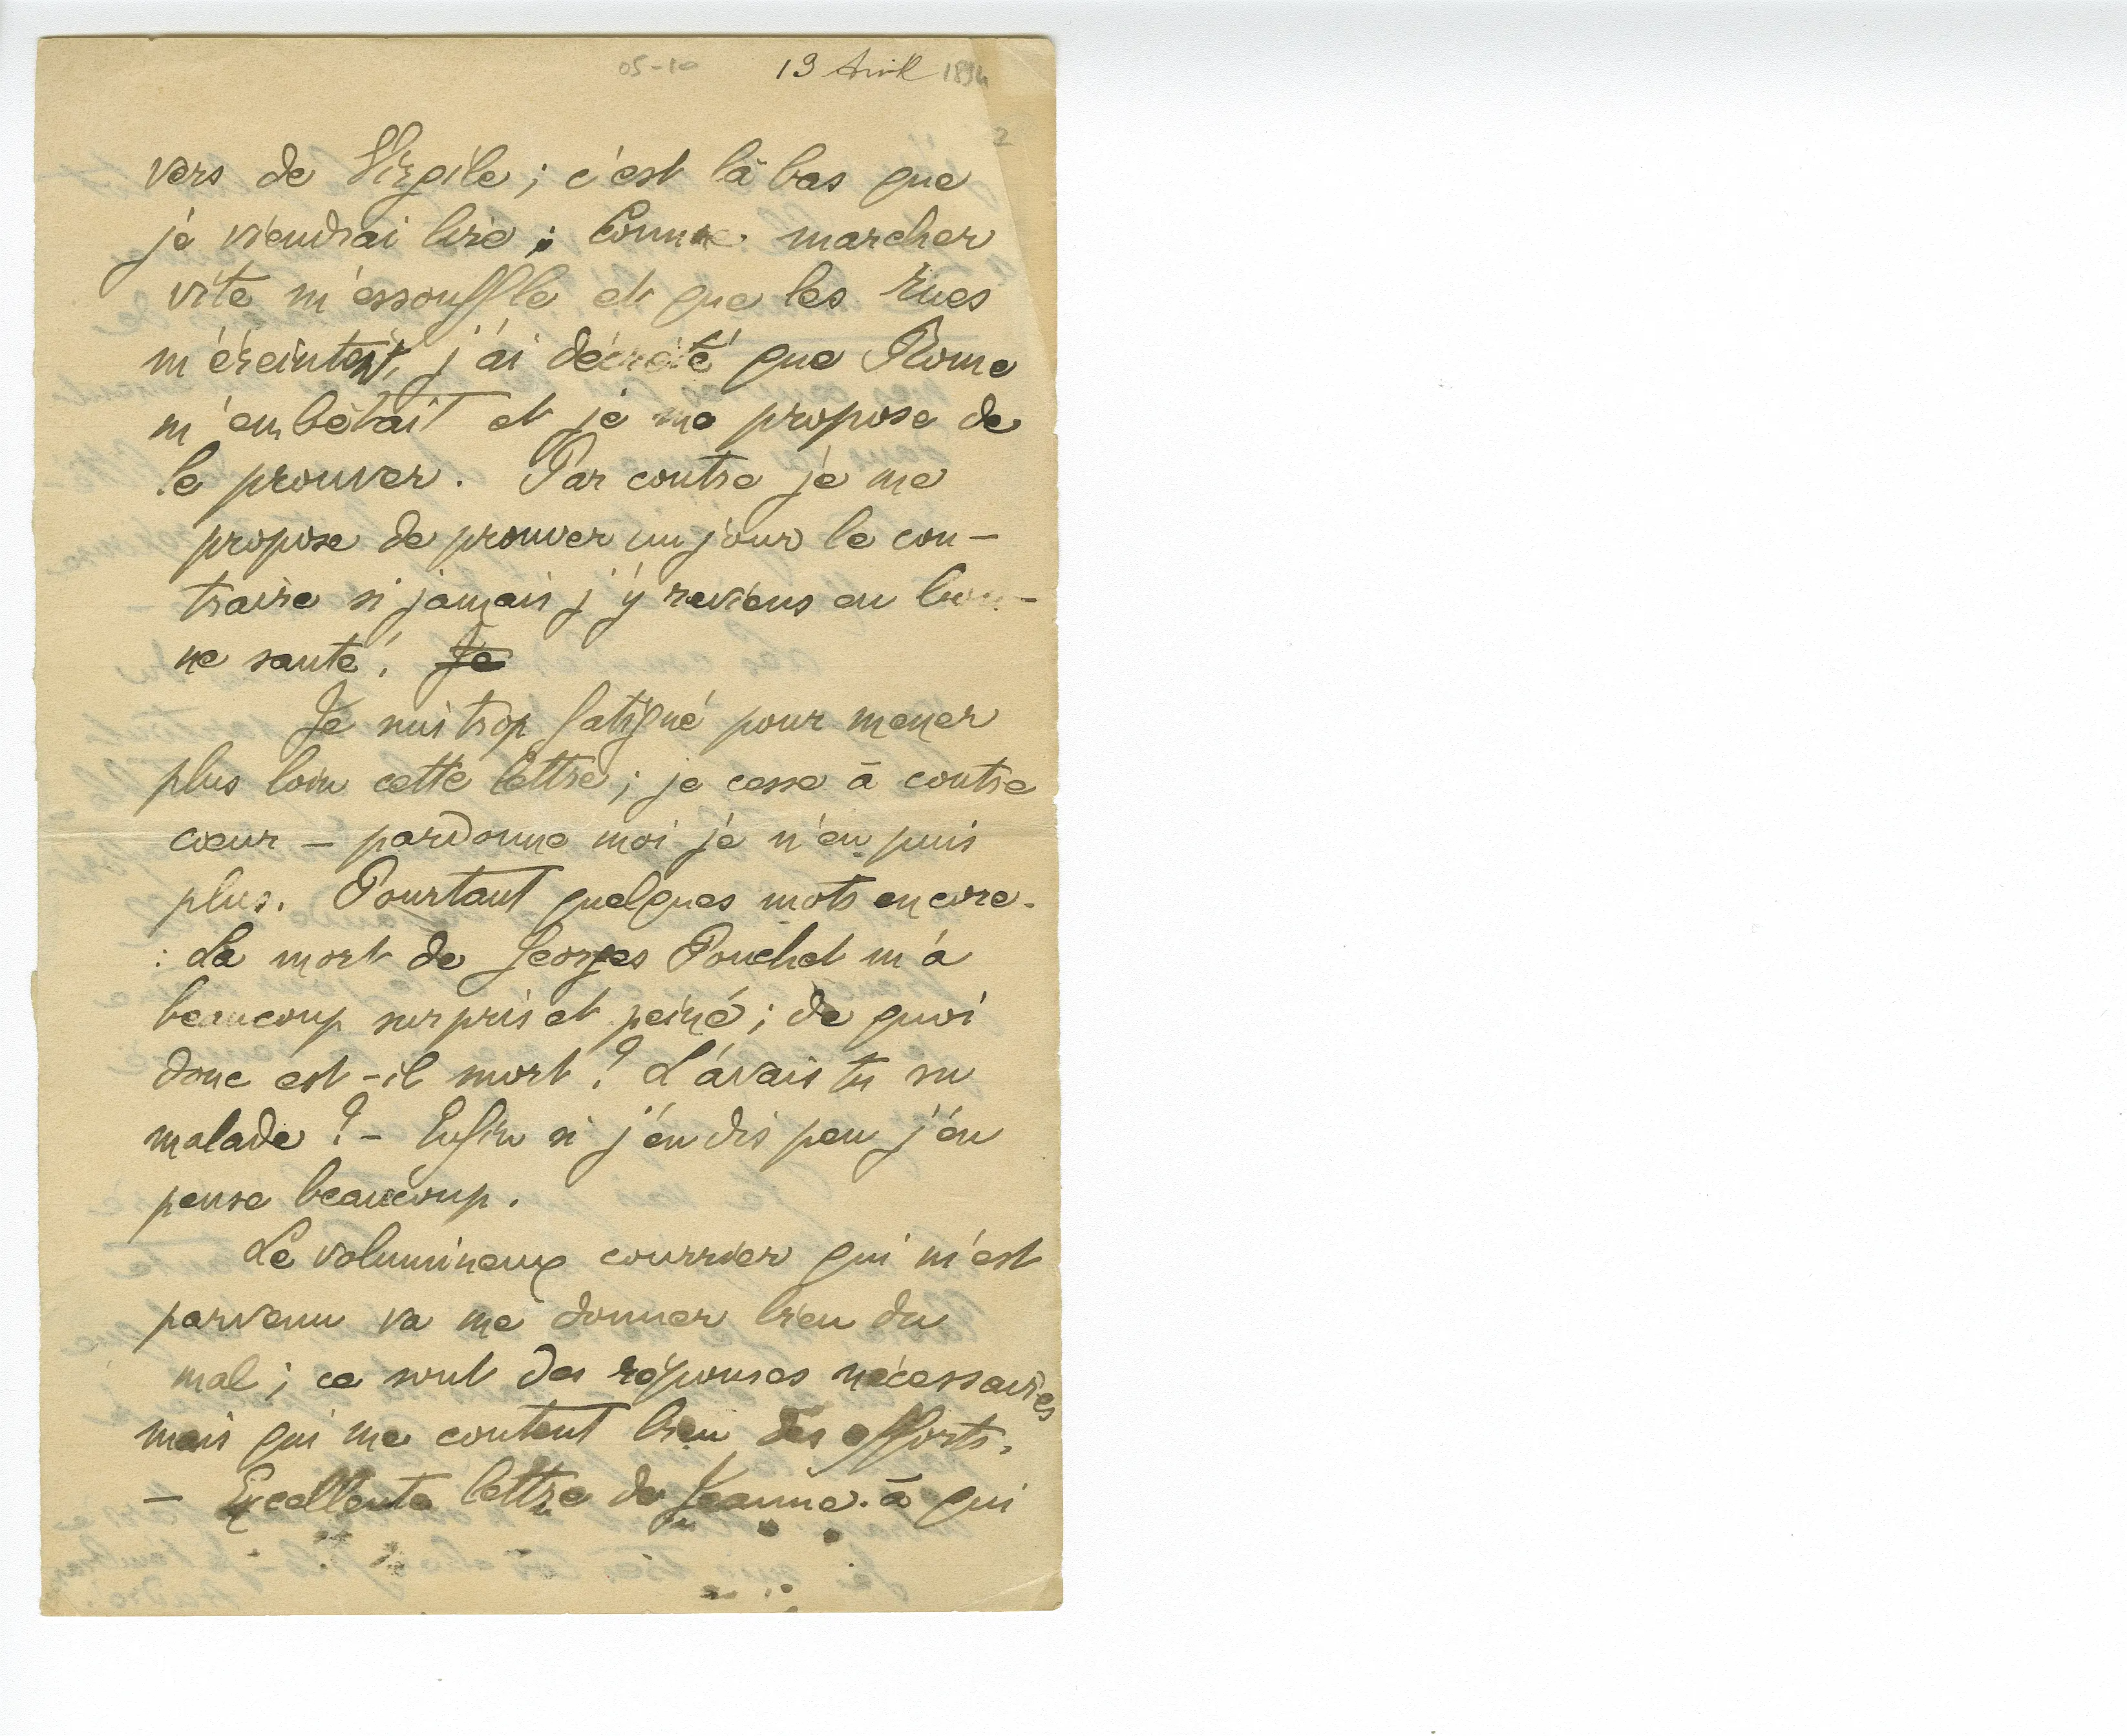 05-10 13 Avril 1894
2
vers de Virgile ; c'est là bas que
je viendrai lire ; Comme marcher
vite m'essouffle et que les rues
m'éreintent, j'ai décrété que Rome
m'embêtait et je me propose de
le prouver. Par contre je me
propose de prouver un jour le con-
traire si jamais j'y reviens en bon-
ne santé ! Je
Je suis trop fatigué pour mener
plus loin cette lettre ; je cesse à contre
cœur – pardonne moi je n'en puis
plus. Pourtant quelques mots encore.
: La mort de Georges Pouchet m'a
beaucoup surpris et peiné ; de quoi
donc est-il mort ? L'avais tu su
malade ? – Enfin si j'en dis peu j'en
pense beaucoup.
Le volumineux courrier qui m'est
parvenu va me donner bien du
mal ; ce sont des réponses nécessaires
mais qui me coutent bien des efforts.
– Excellente lettre de Jeanne. à qui